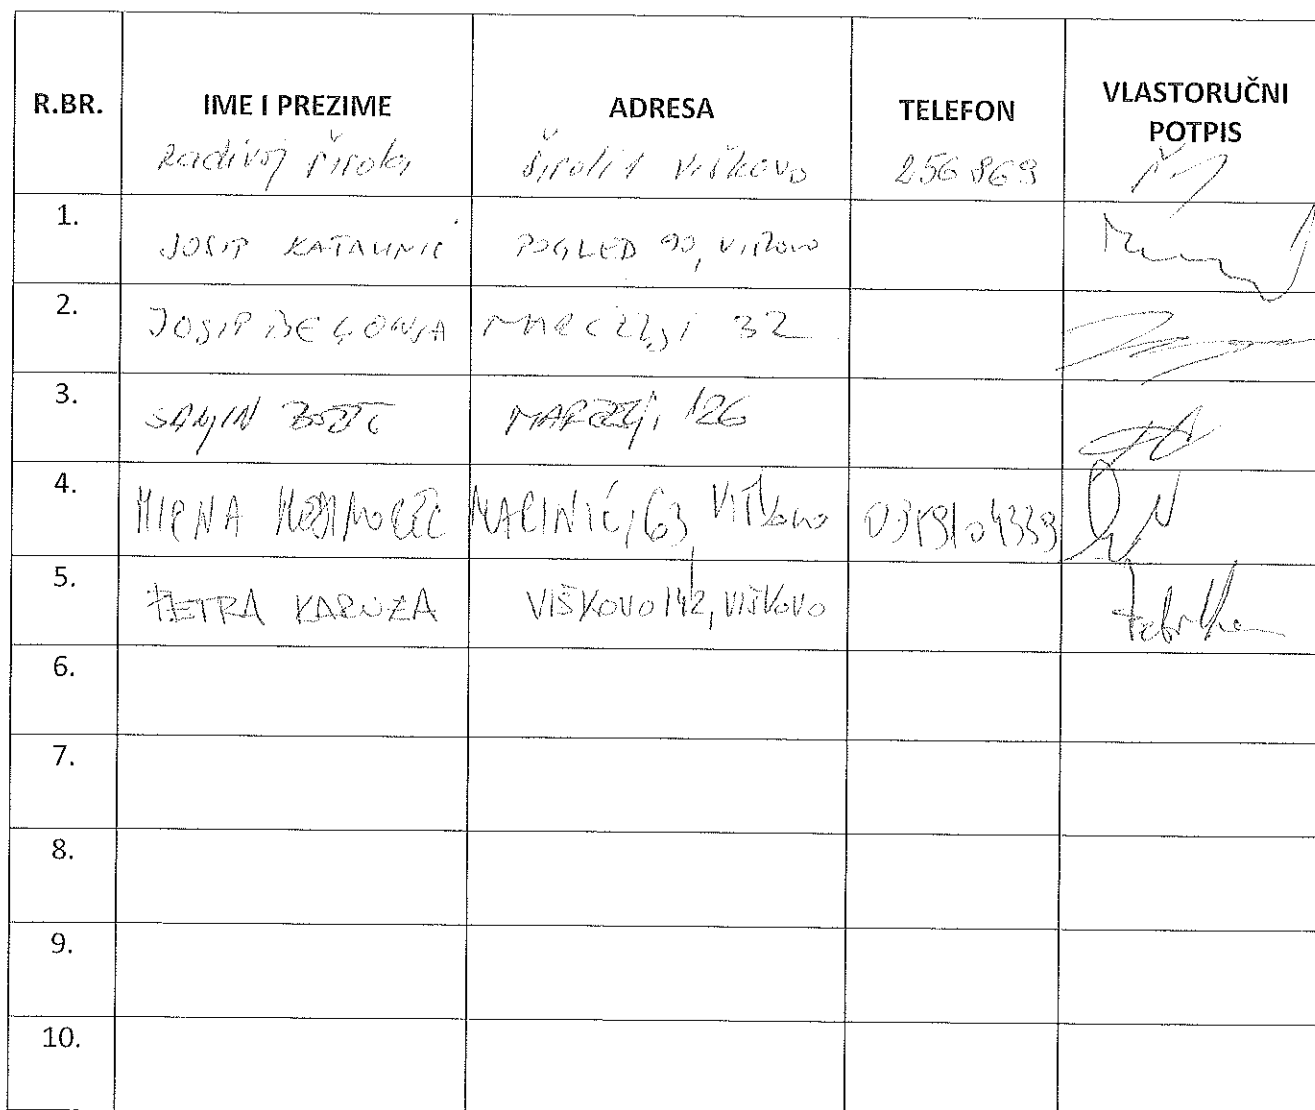 R.BR. IME I PREZIME ADRESA TELEFON VLASTORUČNI POTPIS
Radivoj Širola Široli 1 Viškovo 256 869
1. JOSIP KATALINIĆ POGLED 90, VIŠKOVO
2. JOSIP BEGONJA MARČELJI 32
3. SANJIN BOŽIĆ MARČELJI 126
4. MIRNA MARINIĆI 63, Viškovo
5. PETRA KARUZA VIŠKOVO 142, VIŠKOVO
6.
7.
8.
9.
10.